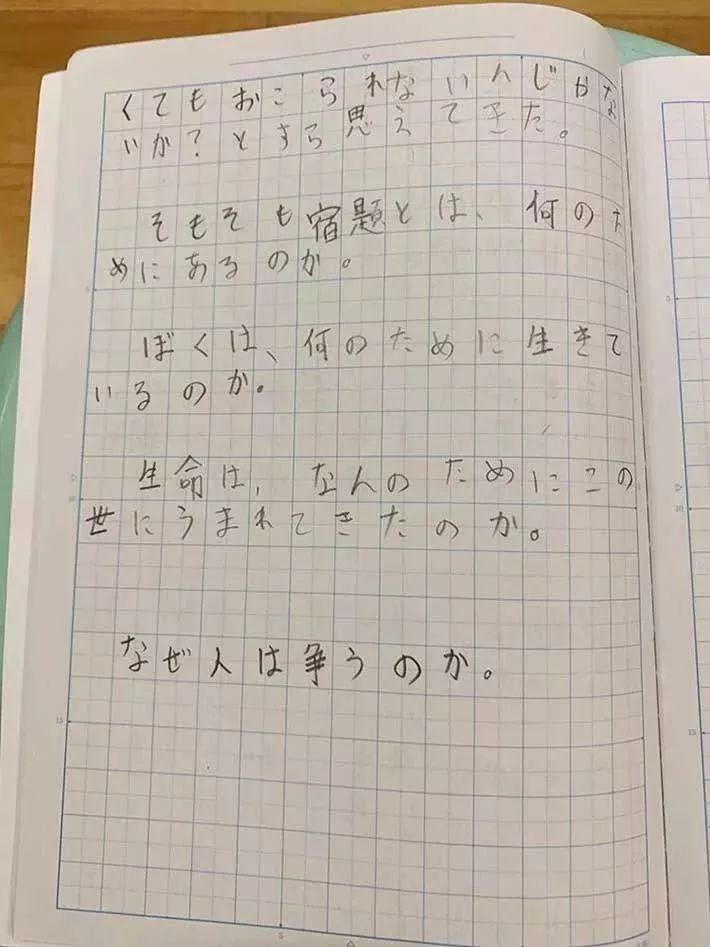 くてもおこられないんじゃな
いか？とすら思えてきた。
そもそも宿題とは、何のた
めにあるのか。
ぼくは、何のために生きて
いるのか。
生命は、なんのためにこの
世にうまれてきたのか。
なぜ人は争うのか。